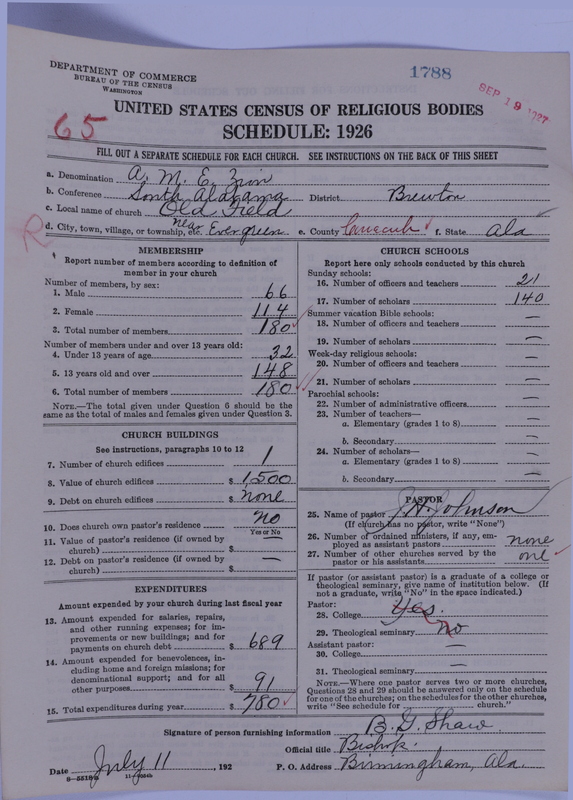 DEPARTMENT OF COMMERCE
BUREAU OF THE CENSUS
WASHINGTON
1788
SEP 19 1927
65
UNITED STATES CENSUS OF RELIGIOUS BODIES
SCHEDULE: 1926
FILL OUT A SEPARATE SCHEDULE FOR EACH CHURCH. SEE INSTRUCTIONS ON THE BACK OF THIS SHEET
a. Denomination A. M. E. Zion
b. Conference South Alabama District Brewton
c. Local name of church Old Field
R d. City, town, village, or township, etc. near Evergreen e. County Conecuh f. State Ala
MEMBERSHIP
Report number of members according to definition of
member in your church
Number of members, by sex:
1. Male 66
2. Female 114
3. Total number of members 180
Number of members under and over 13 years old:
4. Under 13 years of age 32
5. 13 years old and over 148
6. Total number of members 180
NOTE.—The total given under Question 6 should be the
same as the total of males and females given under Question 3.
CHURCH BUILDINGS
See instructions, paragraphs 10 to 12
7. Number of church edifices 1
8. Value of church edifices $ 1,500
9. Debt on church edifices $ none
10. Does church own pastor's residence no
Yes or No
11. Value of pastor's residence (if owned by
church) $ —
12. Debt on pastor's residence (if owned by
church) $ —
EXPENDITURES
Amount expended by your church during last fiscal year
13. Amount expended for salaries, repairs,
and other running expenses; for im-
provements or new buildings; and for
payments on church debt $ 689
14. Amount expended for benevolences, in-
cluding home and foreign missions; for
denominational support; and for all
other purposes $ 91
15. Total expenditures during year $ 780
CHURCH SCHOOLS
Report here only schools conducted by this church
Sunday schools:
16. Number of officers and teachers 21
17. Number of scholars 140
Summer vacation Bible schools:
18. Number of officers and teachers —
19. Number of scholars —
Week-day religious schools:
20. Number of officers and teachers —
21. Number of scholars —
Parochial schools:
22. Number of administrative officers —
23. Number of teachers—
a. Elementary (grades 1 to 8) —
b. Secondary —
24. Number of scholars—
a. Elementary (grades 1 to 8) —
b. Secondary —
PASTOR
25. Name of pastor J. H. Johnson
(If church has no pastor, write "None")
26. Number of ordained ministers, if any, em-
ployed as assistant pastors none
27. Number of other churches served by the
pastor or his assistants one
If pastor (or assistant pastor) is a graduate of a college or
theological seminary, give name of institution below. (If
not a graduate, write "No" in the space indicated.)
Pastor:
28. College Yes.
29. Theological seminary No
Assistant pastor: —
30. College
31. Theological seminary —
NOTE.—Where one pastor serves two or more churches,
Questions 28 and 29 should be answered only on the schedule
for one of the churches; on the schedules for the other churches,
write "See schedule for church."
Signature of person furnishing information B. G. Shaw
Official title Bishop.
Date July 11, 192 P. O. Address Birmingham, Ala.